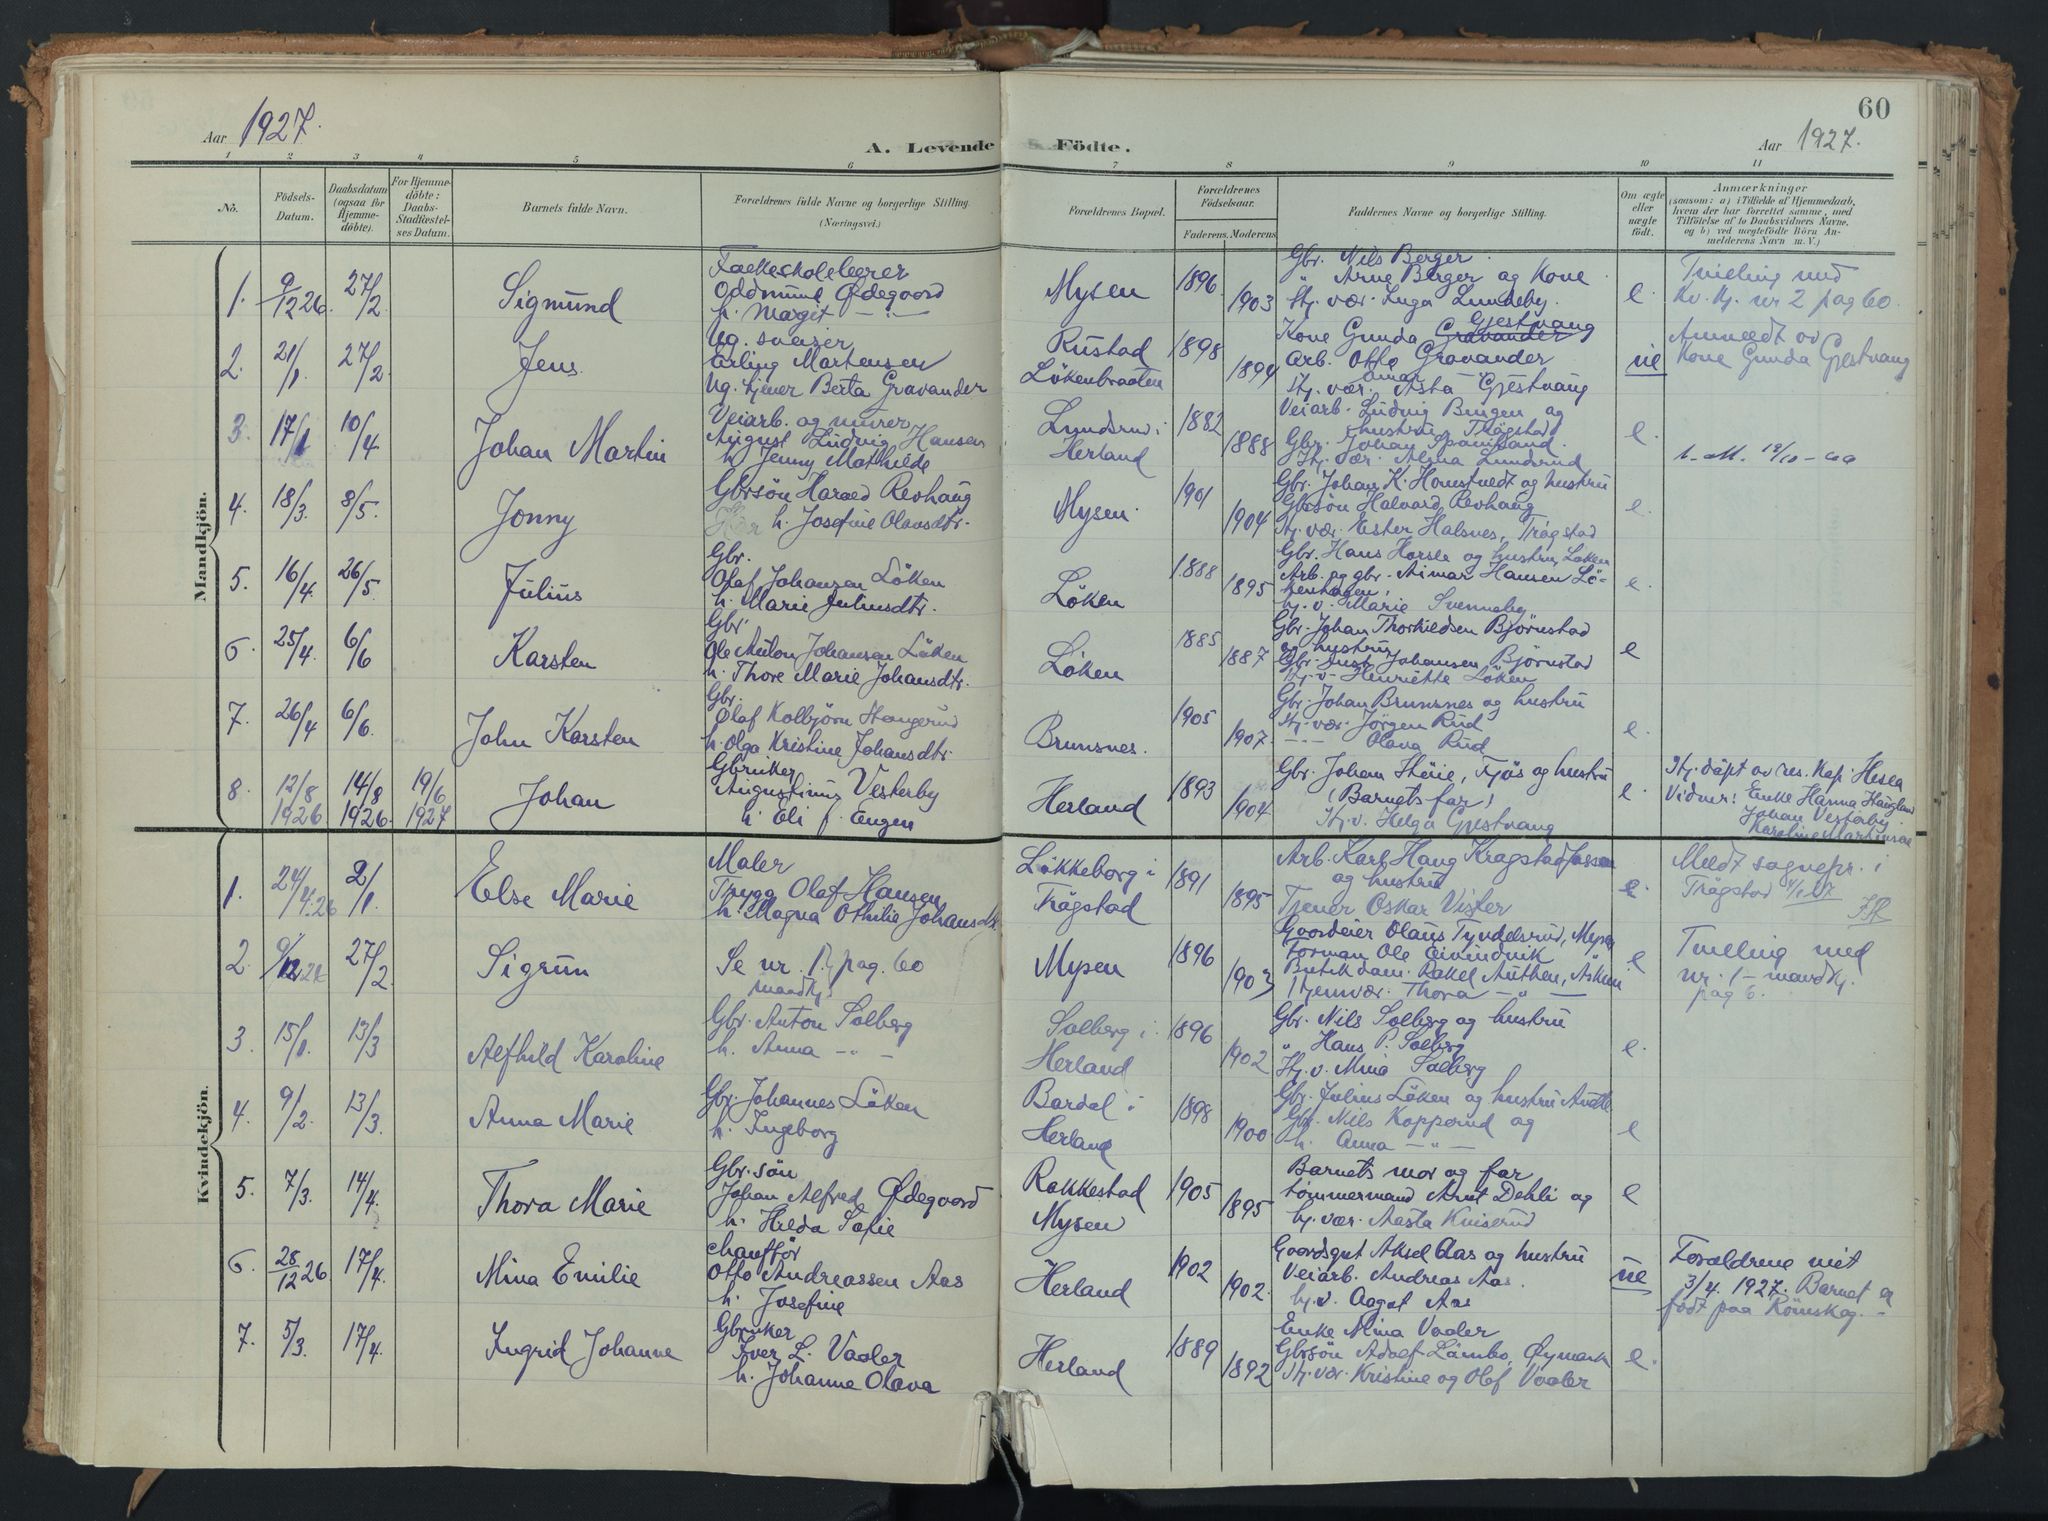 60
Aar 1927.
A. Levende Födte.
Aar 1927.
1 2 3 4 5 6 7 8 9 10 11
No.
Födsels-
Datum.
Daabsdatum
(ogsaa for
Hjemme-
döbte).
For Hjemme-
döbte:
Daabs-
Stadfæstel-
ses Datum.
Barnets fulde Navn.
Forældrenes fulde Navne og borgerlige Stilling.
(Næringsvei.)
Forældrenes Bopæl.
Forældrenes
Födselsaar.
Faderens. Moderens.
Faddernes Navne og borgerlige Stilling.
Om ægte
eller
uægte
født.
Anmærkninger
(saasom: a) i Tilfælde af Hjemmedaab,
hvem der har forrettet samme, med
Tilföielse af to Daabsvidners Navne,
og b) ved uægtefödte Börn An-
melderens Navn m. V.)
Mandkjön.
1. 9/12 26. 27/2 Sigmund
Folkeskolelærer
Oddmund Ødegaard
h. Margit -:-
Mysen 1896 1903
Gbr. Nils Berger.
" Arne Berger og Kone
Hj. vær. Inga Lundeby.
e.
Tvilling med
Kv. Kj. nr 2 pag 60.
2. 21/1 27/2. Jens
Ug. sveiser
Erling Martensen
Ug. tjener Berta Gravander
Rustad
Lökenbraaten
1898 1894
Gjestvang
Kone Gunda Gravander
Arb. Otto Gravander
Hj. vær. Asta Gjestvang
ue
Anmeldt av
Kone Gunda Gjestvang
3. 17/1 10/4. Johan Martin
Veiarb. og murer
August Ludvig Hansen
h. Jenny Mathilde
Lundsrud i
Herland
1882 1888
Veiarb. Ludvig Bungen og
hustru, Trögstad
Gbr. Johan
Hj. vær. Alma Lundsrud
e.
4. 18/3. 8/5. Jonny
Gbrsön Harald Revhaug
h. Josefine Olavsdtr.
Mysen. 1901 1904
Gbr. Johan K. Homstvedt og hustru
Gbrsön Halvard Revhaug
Hj. vær. Ester Halsnes, Trögstad
e.
5. 16/4. 26/5. Julius
Gbr.
Olaf Johansen Löken
h. Marie Juliusdtr.
Löken 1888 1895
Gbr. Hans Horsle og hustru, Löken
Arb. og gbr. Aimar Hansen Lö-
kenhagen,
hj. v. Marie Svenneby
e.
6 25/4. 6/6 Karsten
Gbr.
Ole Anton Johansen Löken
h. Thore Marie Johansdtr.
Löken 1885 1887
Gbr. Johan Thorkildsen Björnstad
og hustru
Gbr. Just Johansen Björnstad
Hj. v. Henriette Löken
e
7. 26/4 6/6. John Karsten
Gbr.
Olaf Kolbjörn Stangerud
h. Olga Kristine Johansdtr.
Brunsnes. 1905 1907.
Gbr. Johan Brunsnes og hustru
Hj. vær. Jörgen Rud
--- Olava Rud
e.
8. 12/8 1926 14/8 1926. 19/6 1927 Johan
Gbruker
Augustinus Vesterby
h. Eli f. Engen
Herland 1893 1904
Gbr. Johan Höie, Fjös og hustru
(Barnets far)
Hj. v. Helga Gjestvang
e.
Hj. döpt av res. Kap. Hesla
Vidner: Enke Hanna Hauglund
Johan Vesterby.
Karoline Martinsen
Kvindekjön.
1. 24/4.26 2/1. Else Marie
Maler
Trygg Olaf Hansen
h. Magna Othilie Johansdtr.
Lökkeborg i
Trögstad
1891 1895
Arb. Karl Haug Kragstadfossen
og hustru
Tjener Oskar Vister
e.
Meldt sognepr. i
Trögstad
2. 9/12 26 27/2 Sigrun
Se nr. 1. pag. 60
mandkj.
Mysen 1896 1903
Gaardeier Olaus Tyndelsrud, Mysen
Forman Ole Eivindvik
Butikdam. Rakel Authen, Askim
Hjemvær. Thora -"-
e
Tvilling med
nr. 1 - mandkj.
pag 6.
3. 15/1. 13/3 Alfhild Karoline
Gbr. Anton Solberg
h. Anna -"-
Solberg i
Herland
1896 1902
Gbr. Nils Solberg og hustru
" Hans P. Solberg
Hj. v. Mina Solberg
e.
4. 9/2. 13/3. Anna Marie
Gbr. Johannes Löken
h. Ingeborg
Bardal i
Herland
1898 1900
Gbr. Julius Löken og hustru
Gbr. Nils Kopperud og
h. Anna -"-
e
5. 7/3. 14/4. Thora Marie
Gbr. sön
Johan Alfred Ødegaard
h. Hilda Sofie
Rakkestad
Mysen
1905 1895
Barnets mor og far
tömmermand Arnt Dehli og
hj. vær. Aasta Kniserud
e
6. 28/12 26 17/4. Mina Emilie
chaufför
Otto Andreassen Aas
h. Josefine
Herland 1902 1902.
Gaardsgut Aksel Aas og hustru
Veiarb. Andreas Aas.
hj. v. Aagot Aas
ue
Forældrene viet
3/4. 1927. Barnet er
född paa Römskog. -
7. 5/3. 17/4. Ingrid Johanne
Gbruker
Iver L. Vaaler
h. Johanne Olava
Herland 1889 1892
Enke Mina Vaaler
Gbrsön Adolf Lömbo, Øymark
Hj. vær. Kristine og Olaf Vaaler
e.